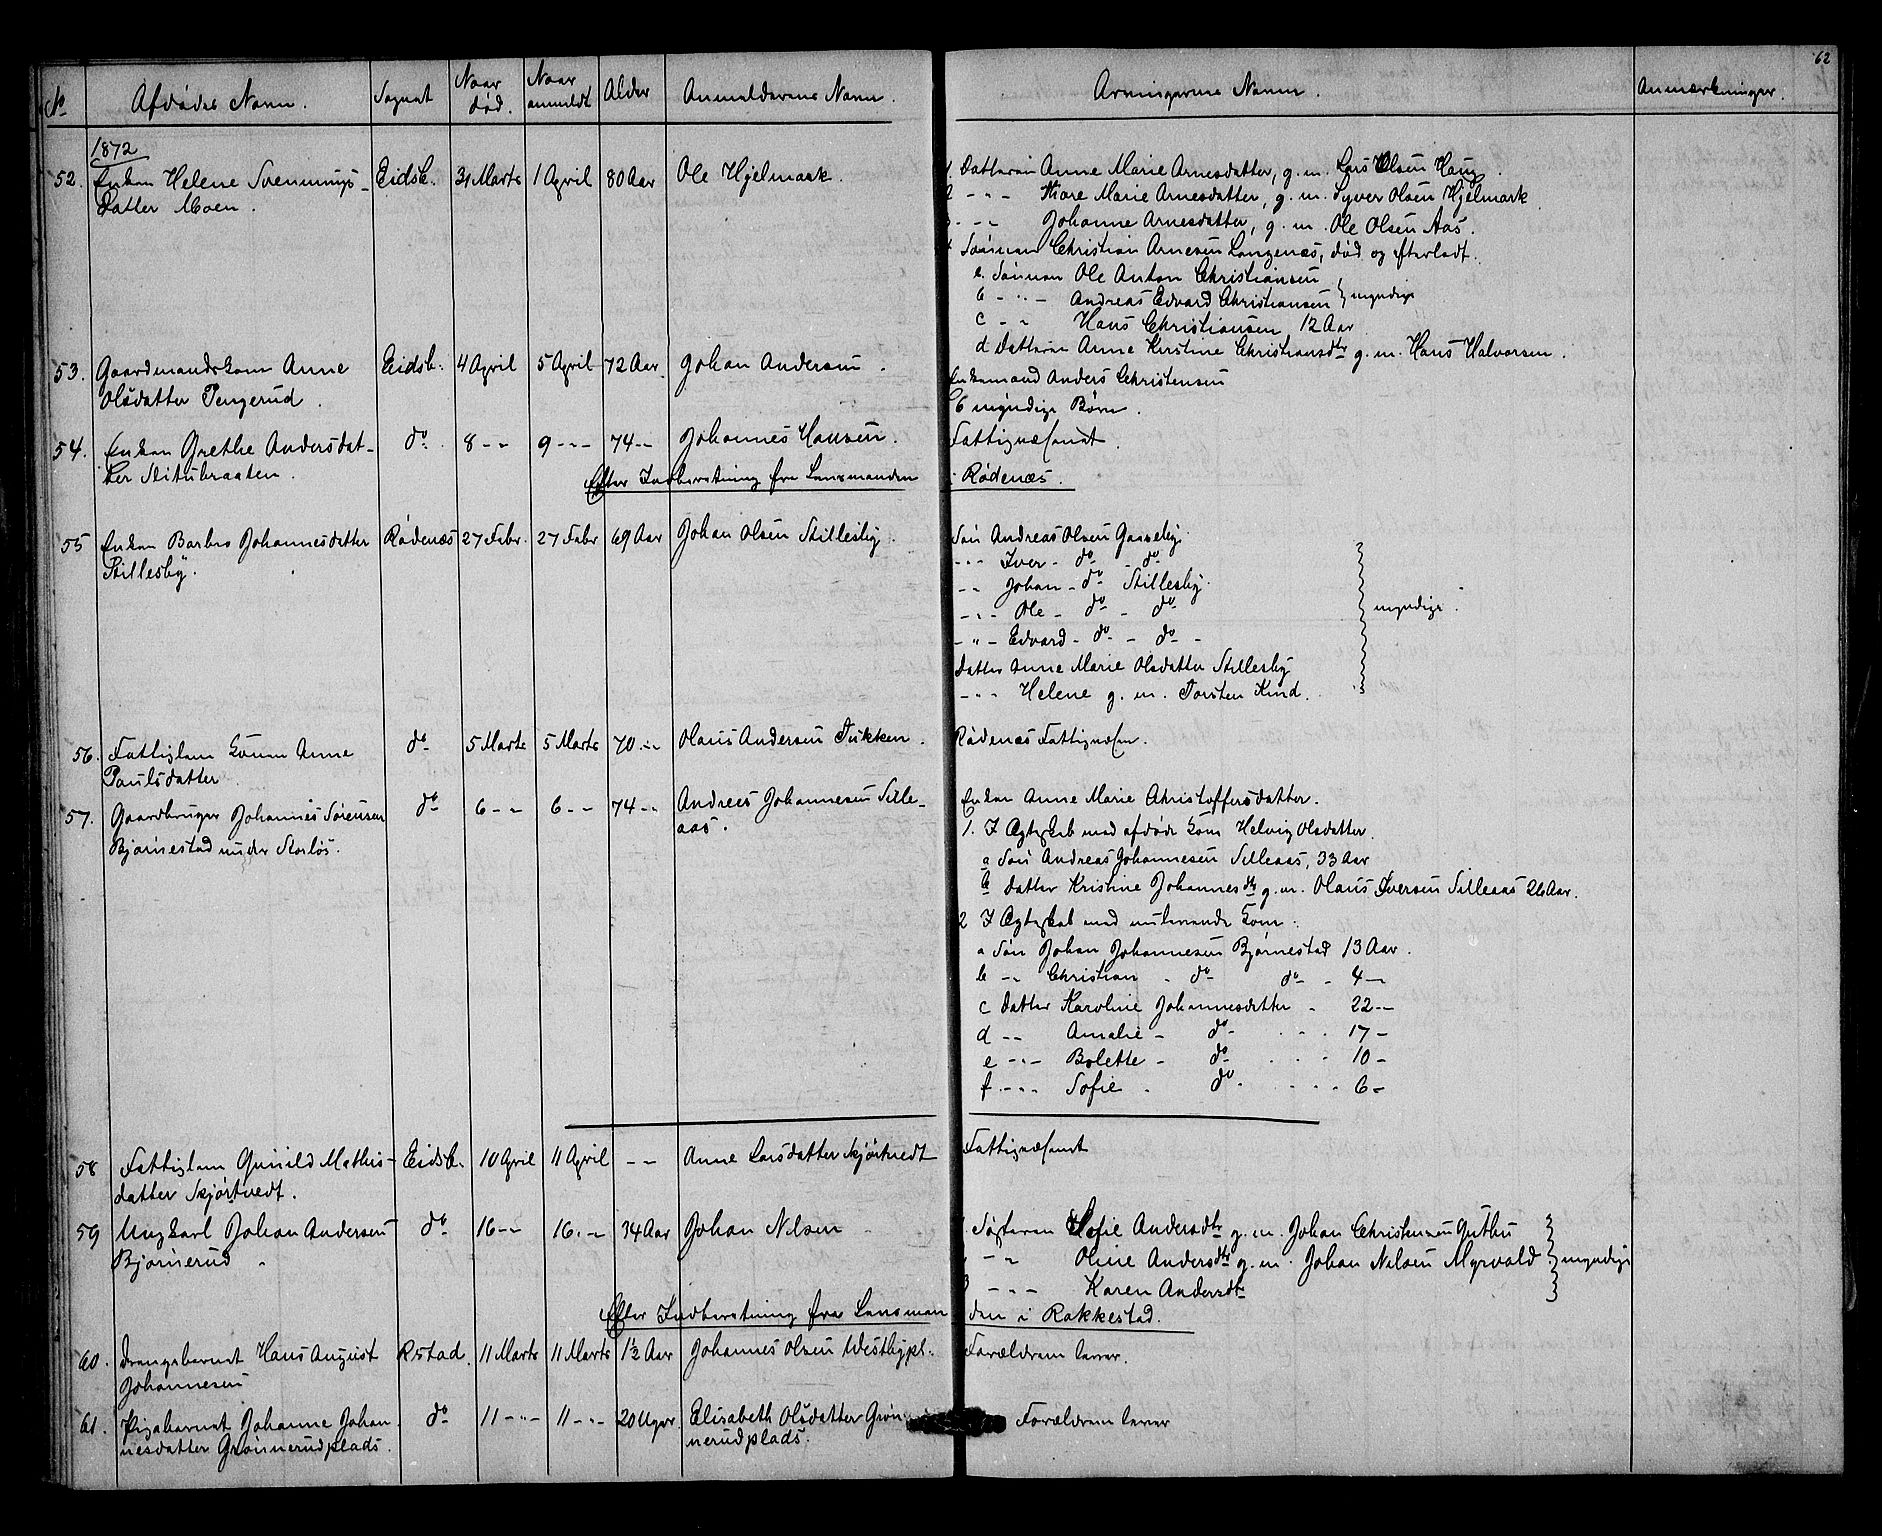 62
No Afdødes Navn. Sognet Naar død. Naar anmeldt Alder Anmelderens Navn. Arvingernes Navn. Anmærkninger.
1872
52. Enken Helene Svennings- Eidsb. 31 Marts 1 April 80 Aar Ole Hjelmark. 1. Datteren Anne Marie Arnesdatter, g. m. Lars Olsen Haug.
datter Moen. 2 - " - Kare Marie Arnesdatter, g. m. Syver Olsen Hjelmark
3 - " - Johanne Arnesdatter, g. m. Ole Olsen Aas.
4 Sønnen Christian Arnesen Langenæs, død og efterladt.
a. Sønnen Ole Anton Christiansen
b - " - Andreas Edvard Christiansen } myndige
c - " Hans Christiansen, 12 Aar
d Datteren Anne Kirstine Christiansdtr g. m. Hans Halvorsen.
53. Gaardmandskone Anne Eidsb. 4 April 5 April 72 Aar. Johan Andersen. Enkemand Anders Christensen
Olsdatter Tengerud. 6 myndige Børn.
54. Enken Grethe Andersdat- do. 8 - " 9 - " - 74 - " Johannes Hansen. Fattigvæsenet.
ter Stitubraaten.
Efter Indberetning fra Lensmanden i Rødenæs.
55 Enken Barbro Johannesdatter Rødenæs 27 Febr. 27 Febr 69 Aar Johan Olsen Stillesby. Søn Andreas Olsen Gaaseby.
Stillesby. - " - Iver - do - do
- " Johan - do Stillesby.
- " - Ole - do - do } myndige.
- " - Edvard - do - do -
Datter Anne Marie Olsdatter Stillesby
- " - Helene g. m. Torsten Kind.
56. Fattiglem Konen Anne do 5 Marts 5 Marts 70 - " Olaus Andersen Tukken. Rødenæs Fattigvæsen.
Paulsdatter.
57. Gaardbruger Johannes Sørensen do 6 - " 6 - " 74 - " Andreas Johannesen Sille- Enken Anne Marie Christoffersdatter.
Bjørnestad under Storløs. aas. 1. I Ægteskab med afdøde Kone Helvig Olsdatter.
a Søn Andreas Johannesen Silleaas, 33 Aar
b Datter Kristine Johannesdtr g. m. Olaus Iversen Silleaas 26 Aar.
2 I Ægteskab med nulevende Kone.
a Søn Johan Johannesen Bjørnestad 13 Aar.
b - " Christian - do do - 4 -
c Datter Karoline Johannesdatter - 22 - "
d - " Amalie - do - 17 -
e - " - Bolette - do - 10 -
f - " - Sofie - do - 6 -
58 Fattiglem Gunild Mathis- Eidsb. 10 April 11 April - " Anne Larsdatter Skjørtvedt Fattigvæsenet
datter Skjørtvedt.
59 Ungkarl Johan Andersen do 16 - " 16 - " 34 Aar Johan Nilsen 1 Søsteren Sofie Andersdtr g. m. Johan Christensen Guthu
Bjørnerud. - " Oline Andersdtr g. m. Johan Nilsen Myrvold } myndige
3 - " - Karen Andersdtr
Efter Indberetning fra Lensmanden i Rakkestad.
60. Drengebarnet Hans August Rstad. 11 Marts 11 Marts 1½ Aar Johannes Olsen Westbypl. Forældrene lever.
Johannesen
61. Pigebarnet Johanne Johan- do 11 - " - 11 - " - 20 Uger. Elisabeth Olsdatter Grøn- Forældrene lever
nesdatter Grønnerudplads. nerudplads.